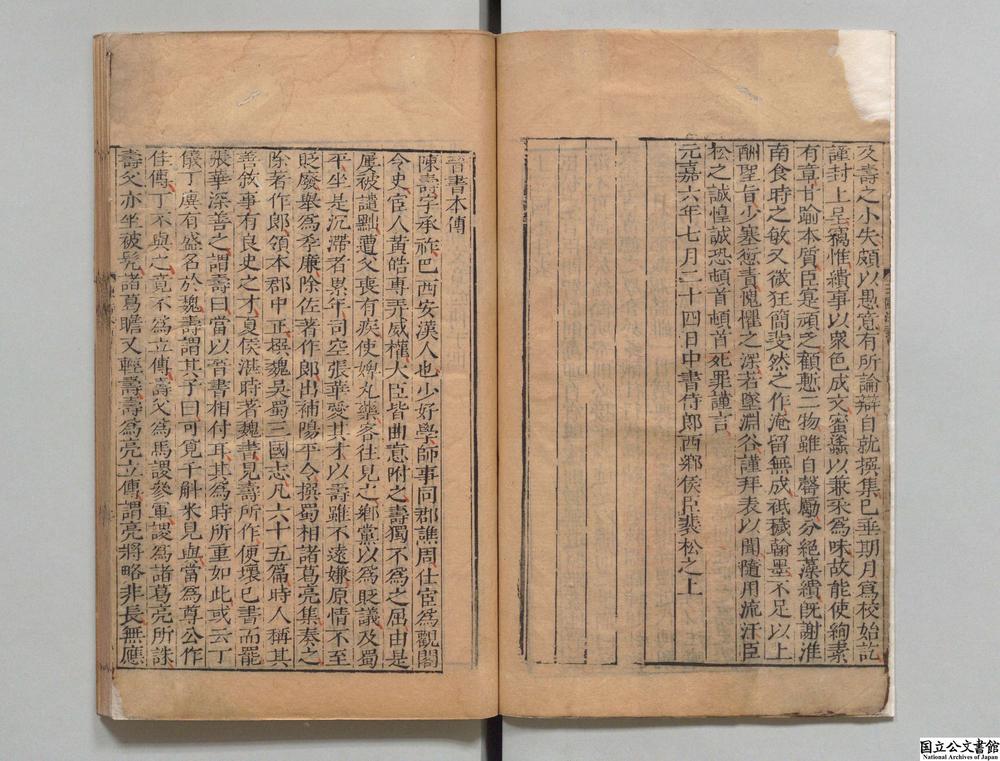 及壽之小失頗以愚意有所論辯自就撰集已垂期月寫校始訖
謹封上呈竊惟繢事以衆色成文蜜蠭以兼采爲味故能使絢素
有章甘踰本質臣寔頑乏顧慙二物雖自罄勵分絶藻繢既謝淮
南食時之敏又微狂簡斐然之作淹留無成秪穢翰墨不足以上
酬聖旨少塞愆責愧懼之深若墜淵谷謹拜表以聞隨用流汗臣
松之誠惶誠恐頓首頓首死罪謹言
元嘉六年七月二十四日中書侍郎西鄉侯臣裴松之上
晉書本傳
陳壽字承祚巴西安漢人也少好學師事同郡譙周仕宦爲觀閣
令史宦人黃皓專弄威權大臣皆曲意附之壽獨不爲之屈由是
屢被譴黜遭父喪有疾使婢丸藥客往見之鄉黨以爲貶議及蜀
平坐是沉滯者累年司空張華愛其才以壽雖不遠嫌原情不至
貶廢舉爲孝廉除佐著作郎出補陽平令撰蜀相諸葛亮集奏之
除著作郎領本郡中正撰魏吳蜀三國志凡六十五篇時人稱其
善敘事有良史之才夏侯湛時著魏書見壽所作便壞己書而罷
張華深善之謂壽曰當以晉書相付耳其爲時所重如此或云丁
儀丁廙有盛名於魏壽謂其子曰可覓千斛米見與當爲尊公作
佳傳丁不與之竟不爲立傳壽父爲馬謖參軍謖爲諸葛亮所誅
壽父亦坐被髠諸葛瞻又輕壽壽爲亮立傳謂亮將略非長無應
国立公文書館
National Archives of Japan